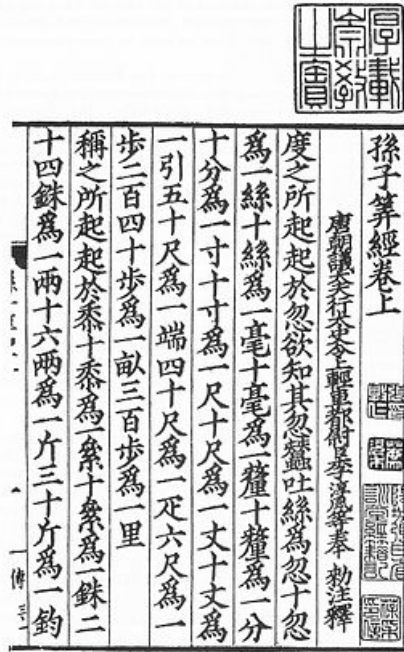 孫子筭經卷上
唐朝議大夫行太史令上輕車都尉臣李淳風等奉 勑注釋
度之所起起於忽欲知其忽蠶吐絲為忽十忽
為一絲十絲為一毫十毫為一釐十釐為一分
十分為一寸十寸為一尺十尺為一丈十丈為
一引五十尺為一端四十尺為一疋六尺為一
歩二百四十歩為一畝三百歩為一里
稱之所起起於黍十黍為一絫十絫為一銖二
十四銖為一兩十六兩為一斤三十斤為一鈞